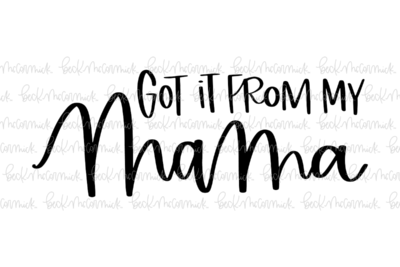 GOT iT FROM MY
Mama